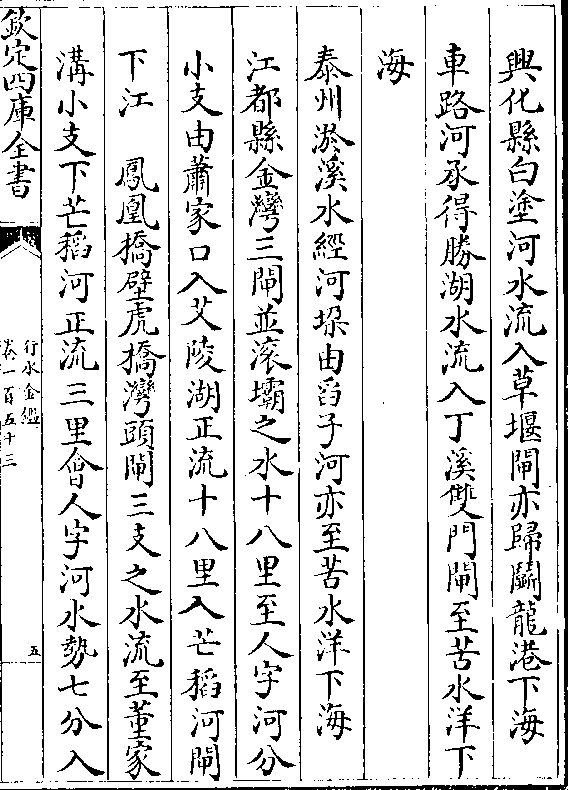 興化縣白塗河水流入草堰閘亦歸鬬龍港下海
車路河承得勝湖水流入丁溪雙門閘至苦水洋下
海
泰州淤溪水經河垜由舀子河亦至苦水洋下海
江都縣金灣三閘並滚壩之水十八里至人字河分
小支由蕭家口入艾陵湖正流十八里入芒稻河閘
下江　鳳凰橋壁虎橋灣頭閘三支之水流至董家
溝小支下芒稻河正流三里會人字河水勢七分入
欽定四庫全書
行水金鑑
卷一百五十三
五